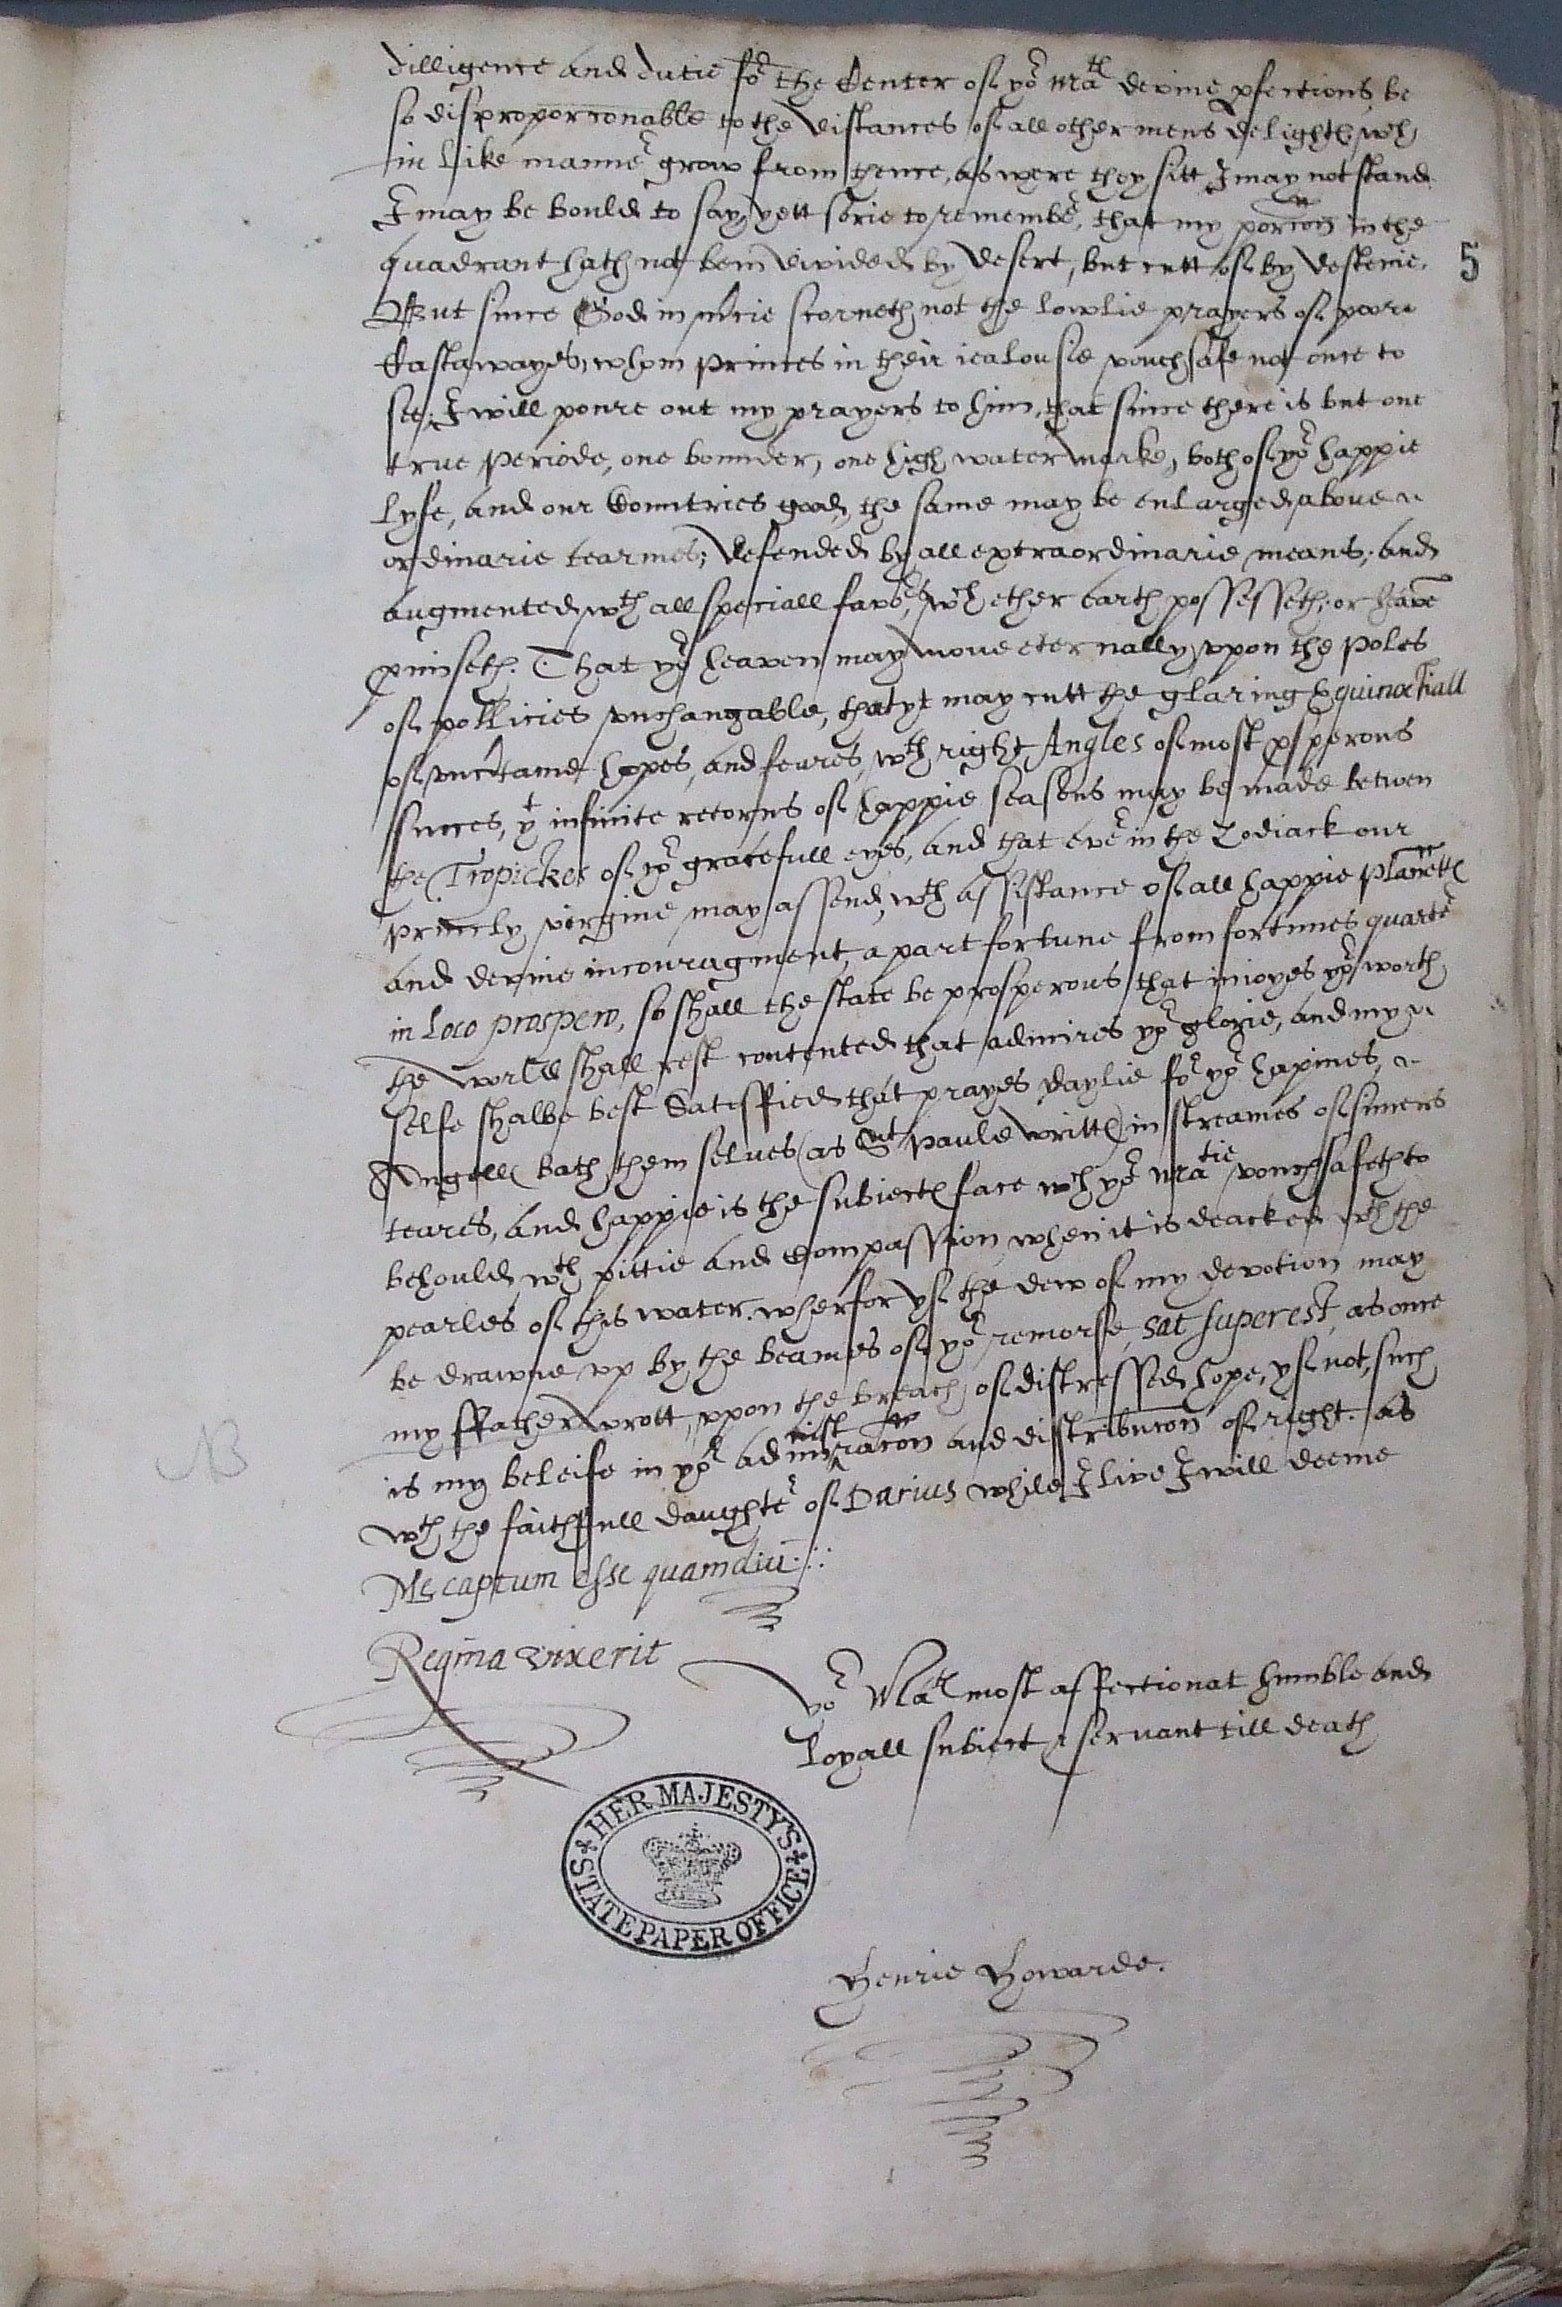 dilligence and dutie fo^r the Center of yo^r Ma^ts devine pfections be
so disproporconable to the distances of all other mens delightes w^ch
in like manner grow from thence, as were they sitt I may not stand
I may be bould to say, yett sorie to remembr, that my porcon in the
quadrant hath not bein divided by desert, but cutt of by destenie.
5
But since God in mcie scorneth not the lowlie prayers of poore
Castawayes, whom Princes in their iealousie vouchsafe not once to
see, I will poure out my prayers to him, that since there is but one
true Periode, one bounder, one high water marke, both of yo^r happie
lyfe, and our Countries good, the same may be enlarged above
ordinarie tearmes; defended by all extraordinarie means; and
augmented w^th all speciall favo^rs, whether earth possesseth, or heaven
pmiseth. That yo^r heaven may move eternally vpon the Poles
of pollicies vnchangable, that yt may cutt the glaring Equinoctiall
of vncertaine hopes, and feares, w^th right Angles of most psperous
succes, y^t infinite retorns of happie seasons may be made betwen
the Tropickes of yo^r gracefull eyes, and that ever in the Zodiack our
Princly virgine may assend, w^th assistance of all happie Planettes
and devine incouragment, a part fortune from fortunes quarter
in loco prospero, so shall the state be prosperous that inioyes yo^r worth
the world shall rest contented that admires yo^r glorie, and my
selfe shalbe best Satisffied that prayes daylie fo^r yo^r hapines,
Angelles bath them selves (as S^nt Paule writtes) in streames of sinners
teares, and happie is the subiectes face w^ch yo^r Ma^tie vouchsafeth to
behould, w^th pittie and Compassion when it is deacked w^th the
pearles of this water. wherfor yf the dew of my devotion may
be drawne vp by the beames of yo^r remorse, sat superest, as once
my ffather wrott, vpon the breach of distressed hope, yf not, such
is my beleife in yo^r administracon and distribucon of right. as
w^th the faithfull daughter of Darius while I live I will deeme
Me captum esse quamdiu
Regina vixerit
Yo^r Ma^ts most affectionat humble and
loyall subiect & servant till death
HER MAJESTY'S STATE PAPER OFFICE
Henrie Howarde.
NB